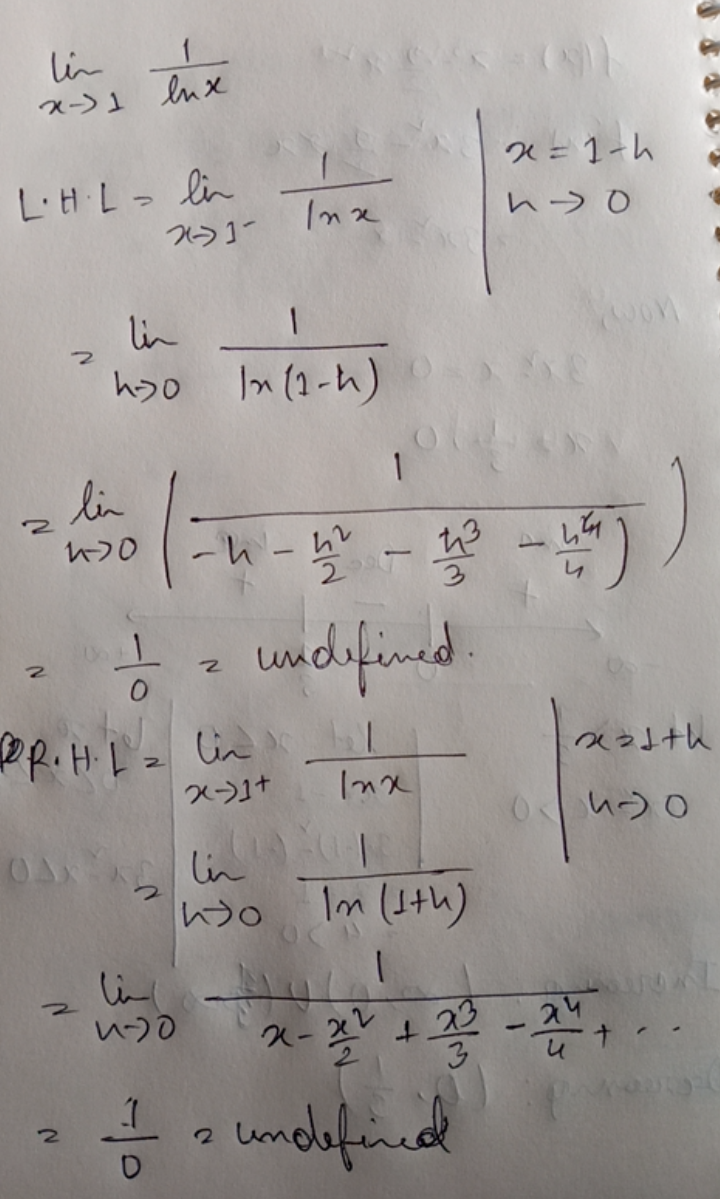 lim x→1 1/ln x
L.H.L = lim x→1- 1/ln x | x = 1-h
h → 0
= lim h→0 1/ln(1-h)
= lim h→0 ( 1/-h - h²/2 - h³/3 - h⁴/4) )
= 1/0 = undefined.
R.H.L = lim x→1+ 1/ln x | x=1+h
h→ 0
= lim h→0 1/ln (1+h)
= lim h→0 1/x - x²/2 + x³/3 - x⁴/4 + ..
= 1/0 = undefined